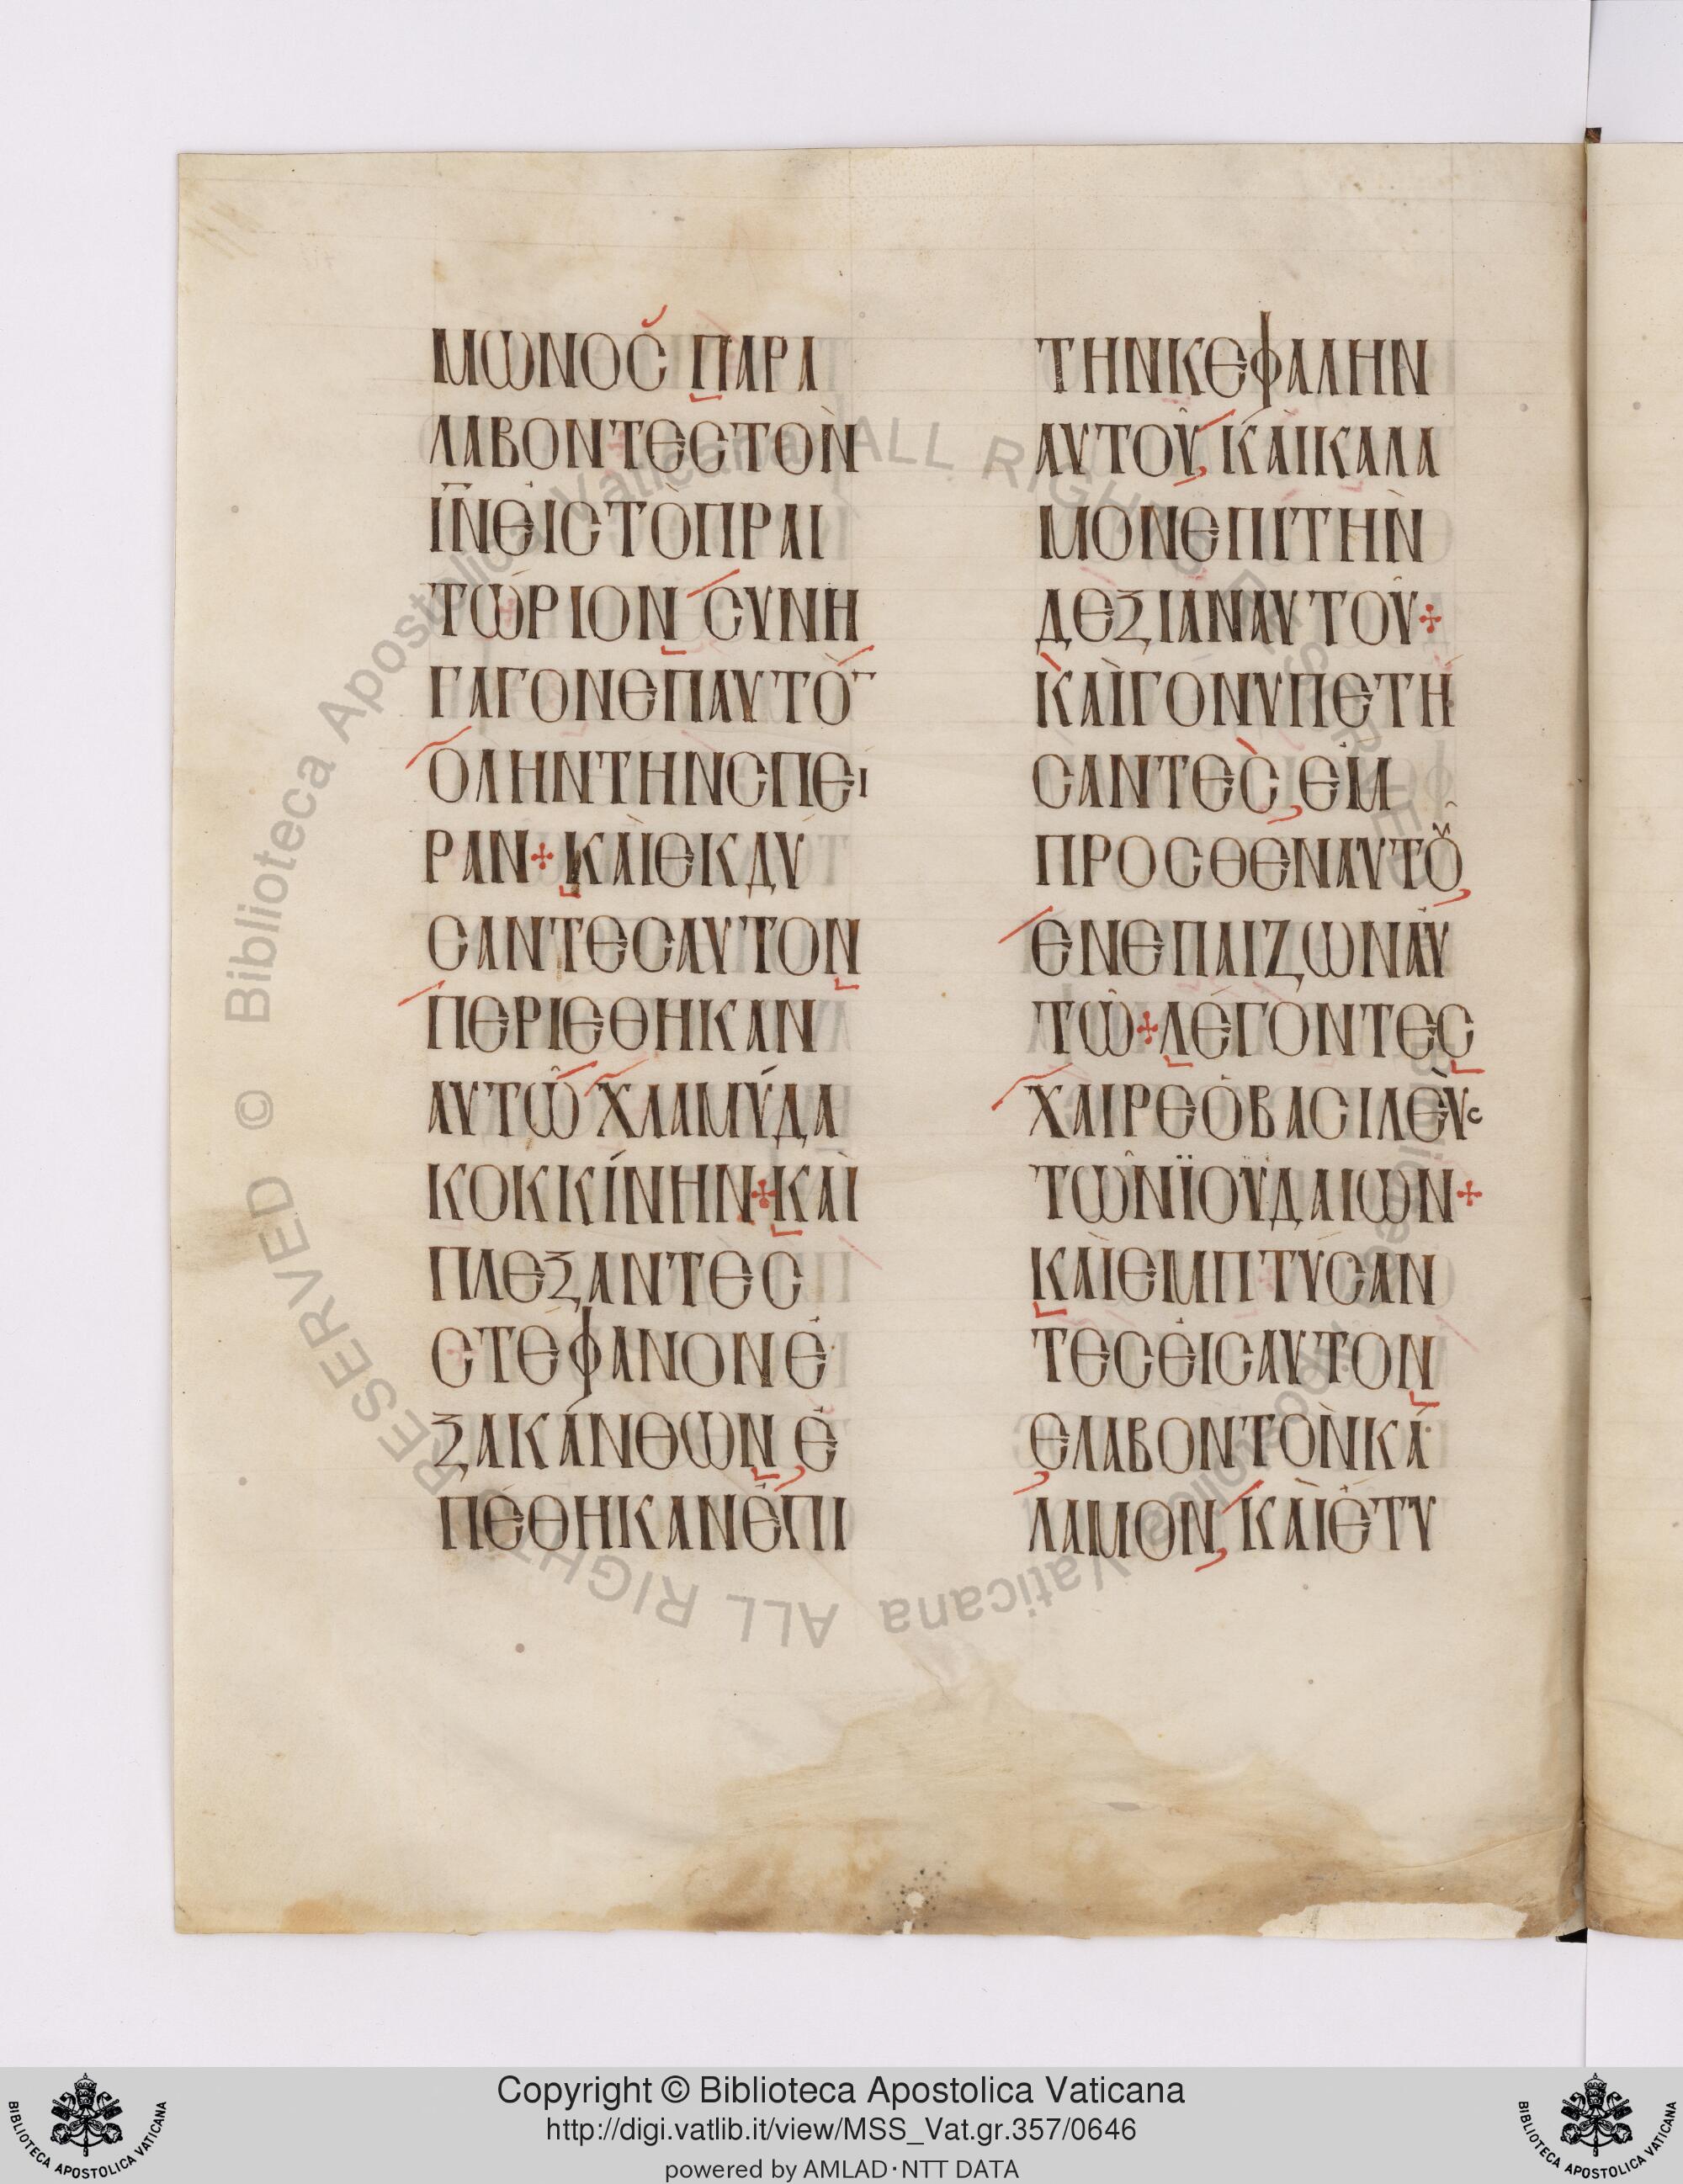 ΜΩΝΟϹ ΠΑΡΑ
ΛΑΒΟΝΤΕϹΤΟῸΝ
ΙΝ̅ΕΙϹΤῸΠΡΑΙ
ΤΏΡΙΟΝ ϹΥΝΗ
ΓΑΓΟΝΕΠΑΥΤῸ¯
ὉΛΗΝΤΗΝϹΠΕΙ
ΡΑΝ+ΚΑῚΕΚΔΥ
ϹΑΝΤΕϹΑΥΤΟΝ
ΠΕΡΙΕΘΗΚΑΝ
ΑΥΤΩ͂ ΧΛΑΜΎΔΑ
ΚΟΚΚΊΝΗΝ+ΚΑῚ
ΠΛΕΞΑΝΤΕϹ
ϹΤΕΦΑΝΟΝΕ
ΞΑΚΆΝΘΩΝ Ε
ΠΈΘΗΚΑΝΕΠΙ
ΤΗΝΚΕΦΑΛΗΝ
ΑΥΤΟΥ͂, ΚΑῚΚΑΛΑ
ΜΟΝΕΠΙΤΗΝ̀
ΔΕΞΙΑΝΑΥΤΟΥ͂+
ΚΑῚΓΟΝΥΠΕΤΗ
ϹΑΝΤΕϹ, ΕΜ
ΠΡΟϹΘΕΝΑΥΤΟΥ͂,
ΕΝΕΠΑΙΖΩΝΑΥ
ΤΩ͂+ΛΈΓΟΝΤΕϹ
ΧΑΙΡΕΟΒΑϹΙΛΕΥϹ
ΤΩ͂ΝΪΟΥΔΑΙΩΝ+
ΚΑῚΕΜΠΤΎϹΑΝ
ΤΕϹΕΙϹΑΥΤΟΝ
ΕΛΑΒΟΝΤΟΝ̀ΚΆ
ΛΑΜΟΝ, ΚΑῚΕΤΥ
© Biblioteca Apostolica Vaticana ALL RIGHTS RESERVED © Biblioteca Apostolica Vaticana ALL RIGHTS RESERVED
Copyright © Biblioteca Apostolica Vaticana
http://digi.vatlib.it/view/MSS_Vat.gr.357/0646
powered by AMLAD·NTT DATA
BIBLIOTECA APOSTOLICA VATICANA
BIBLIOTECA APOSTOLICA VATICANA